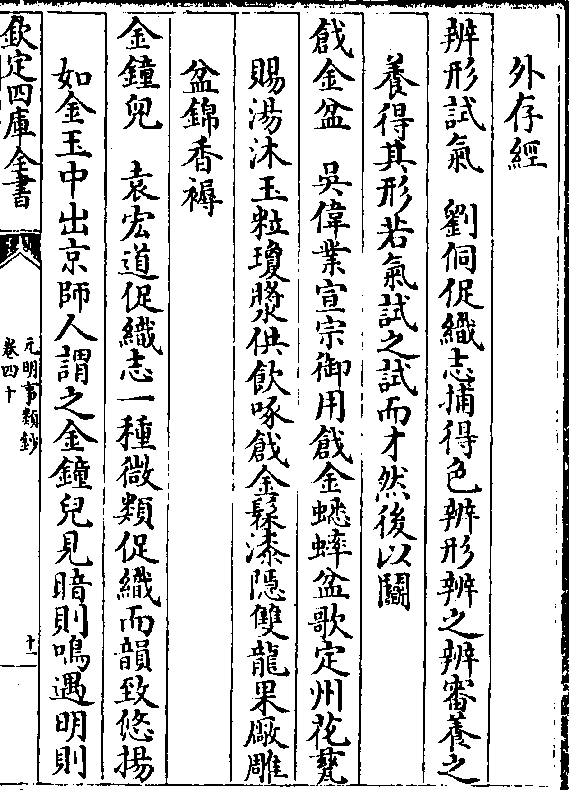 外存經
辨形試氣　劉侗促織志捕得色辨形辨之辨審養之
養得其形若氣試之試而才然後以鬭
戧金盆　吳偉業宣宗御用戧金蟋蟀盆歌定州花甆
賜湯沐玉粒瓊漿供飲啄戧金髹漆隠雙龍果厰雕
盆錦香褥
金鐘兒　袁宏道促織志一種微類促織而韻致悠揚
如金玉中出京師人謂之金鐘兒見暗則鳴遇明則
欽定四庫全書
元明事類鈔
卷四十
十一